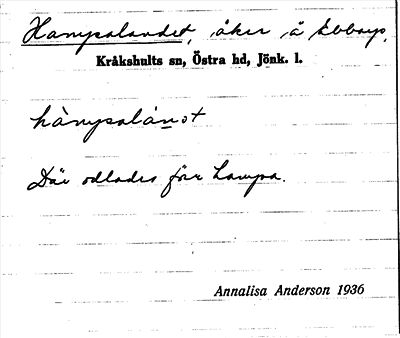 Hampalandet, åker å Ebbarp,
Kråkshults sn, Östra hd, Jönk. l.
hàmpalán̠ot
Där odlades för hampa.
Annalisa Anderson 1936